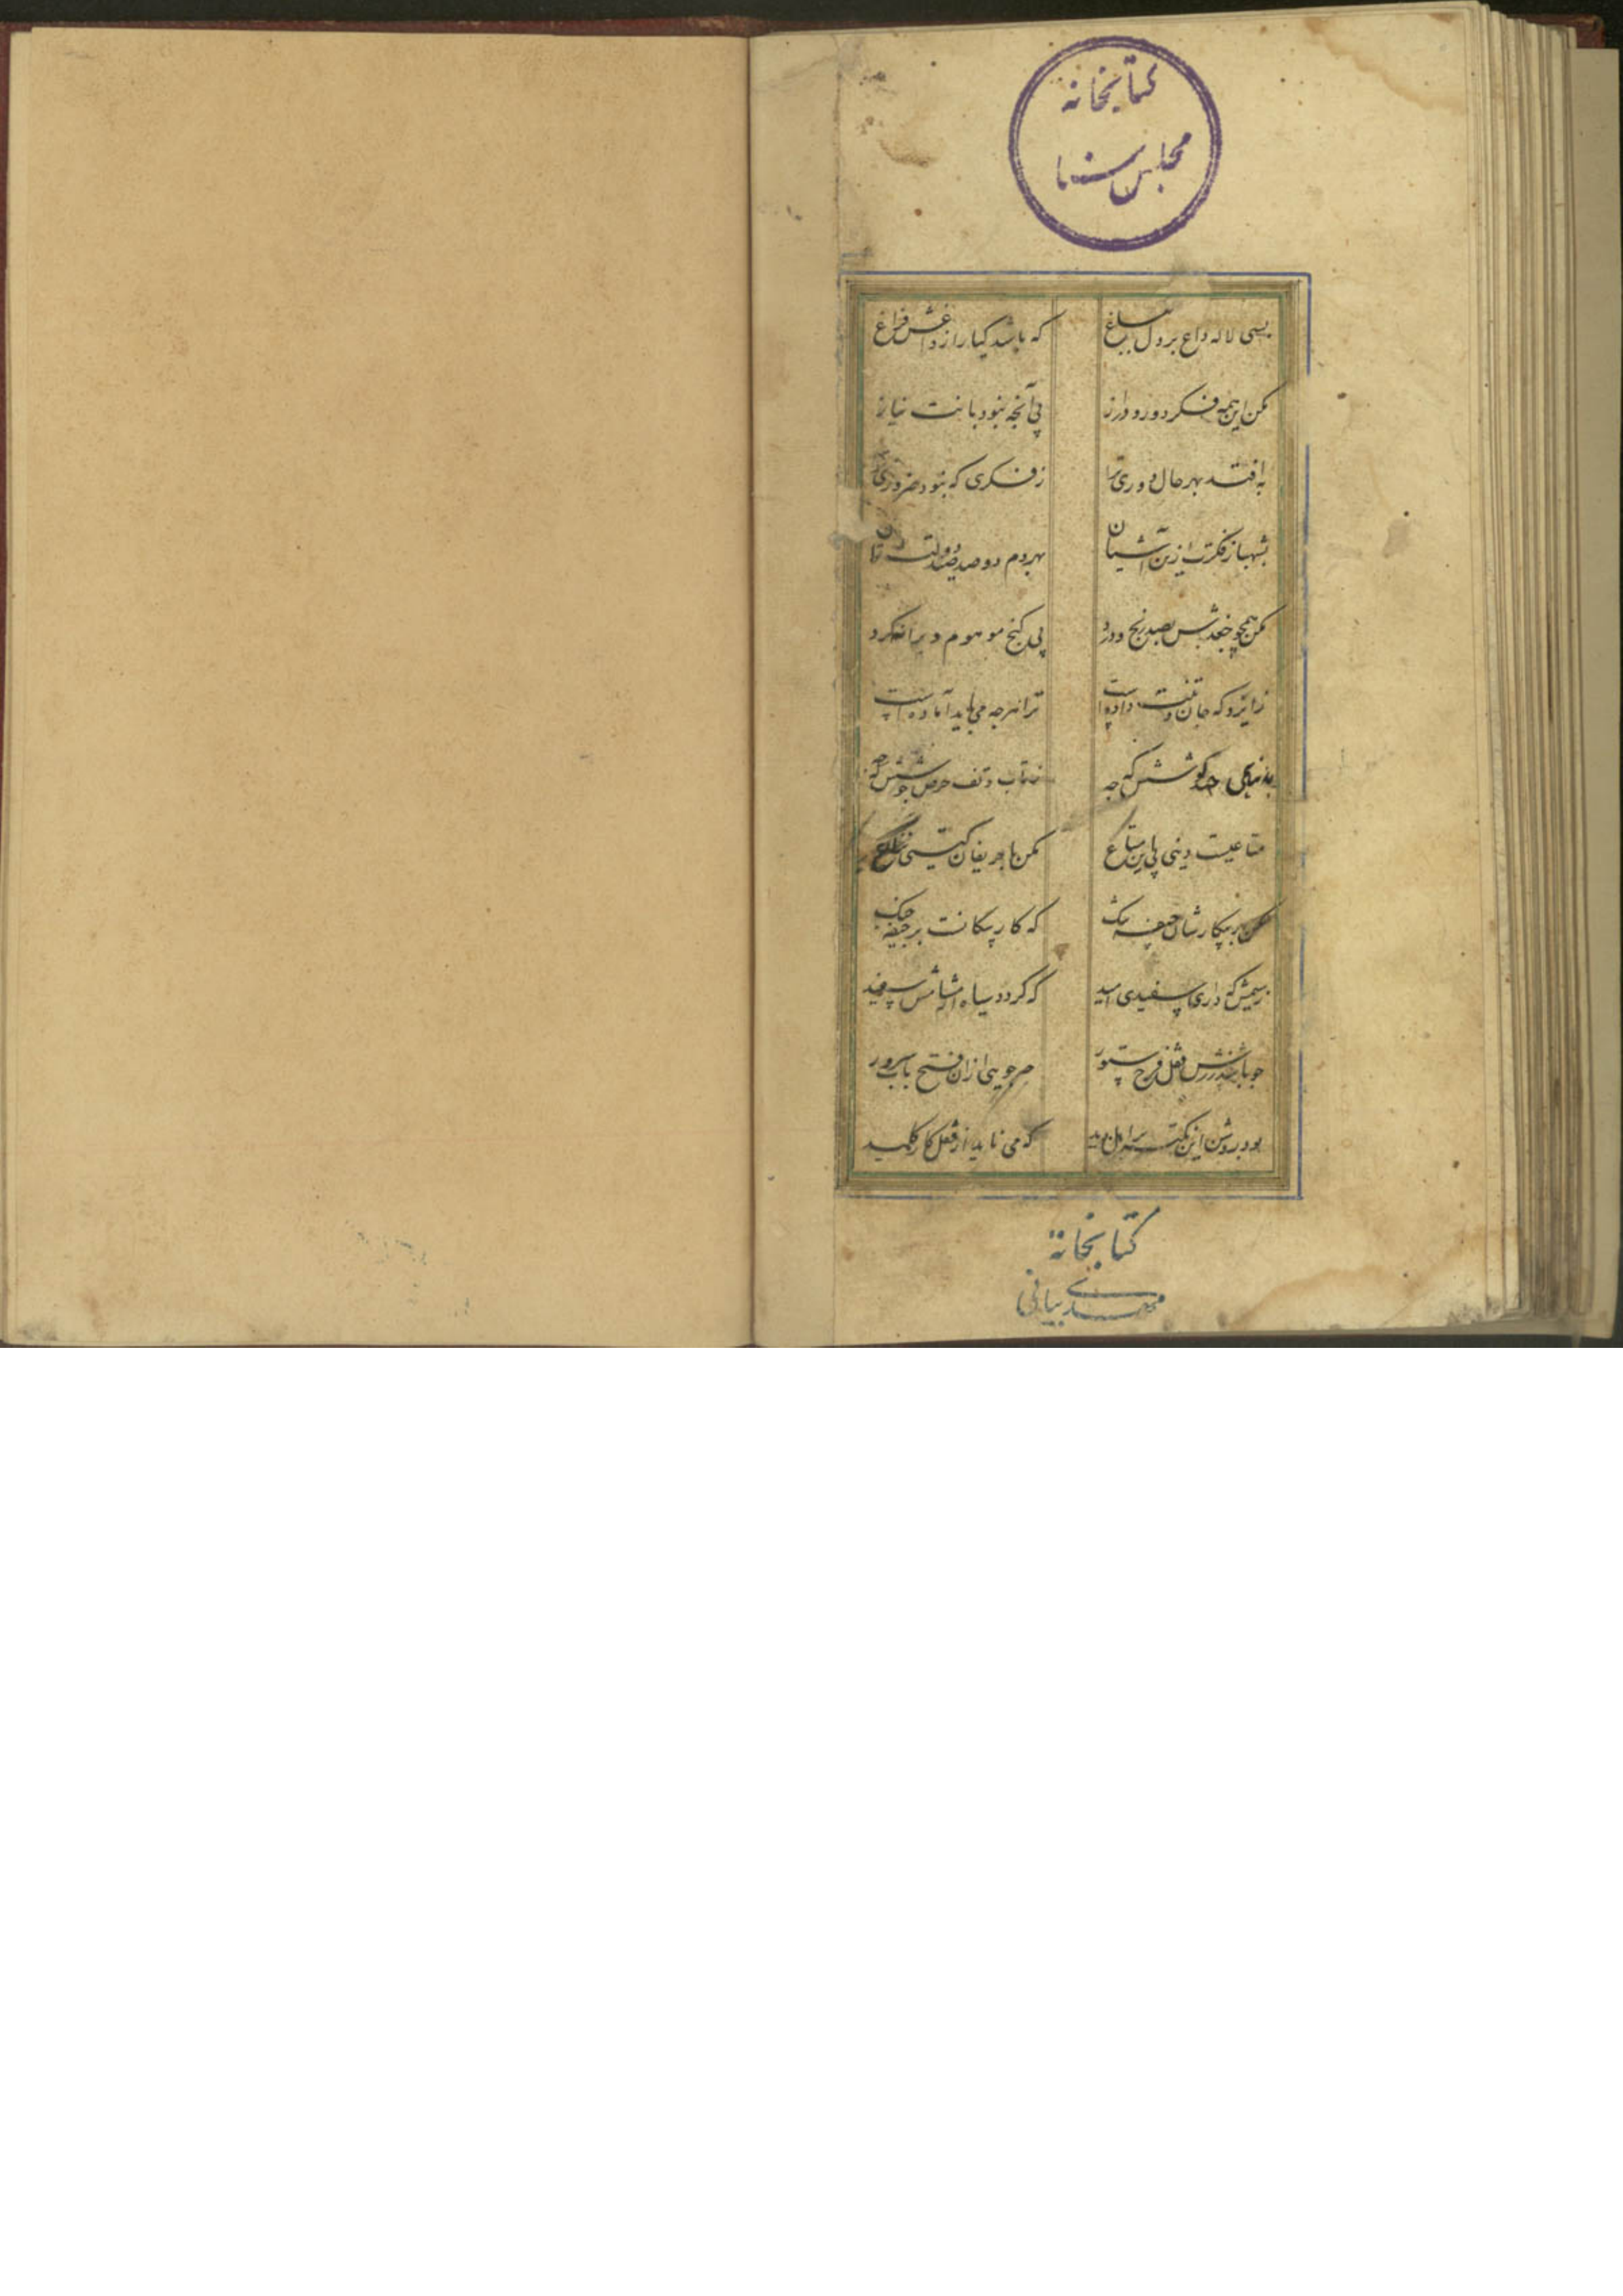 کتابخانه
مجلس سنا
بسی لاله داغ بر دل بباغ که باشد گیا را ز داغش فراغ
مکن این همه فکر دور و دراز پی آنچه نبود بانت نیاز
به افتد بهر حال دوری ترا ز فکری که نبود ضروری ترا
بشهباز فکرت ازین آشیان بهر دم دو صد صید دولت
مکن همچو جغدش بصد رنج و درد پی گنج موهوم ویرانه گرد
ز ایزد که جان و تنت داده است ترا هر چه می باید آماده است
کوشش که چه ز تاب و تف حرص جوشش که چه
متاعیست دینی پی این متاع مکن با حریفان گیتی نزاع
مکن بر سر جیفه که کار سگانست بر جیفه جنگ
ز سیمش که داری سفیدی امید که گردد سیاه
چو باشد زرش قفل فرح ستور چه جویی ازان فتح باب سرور
بود روشن این نکته که می ناید از قفل کار کلید
کتابخانه
مهدی بیانی